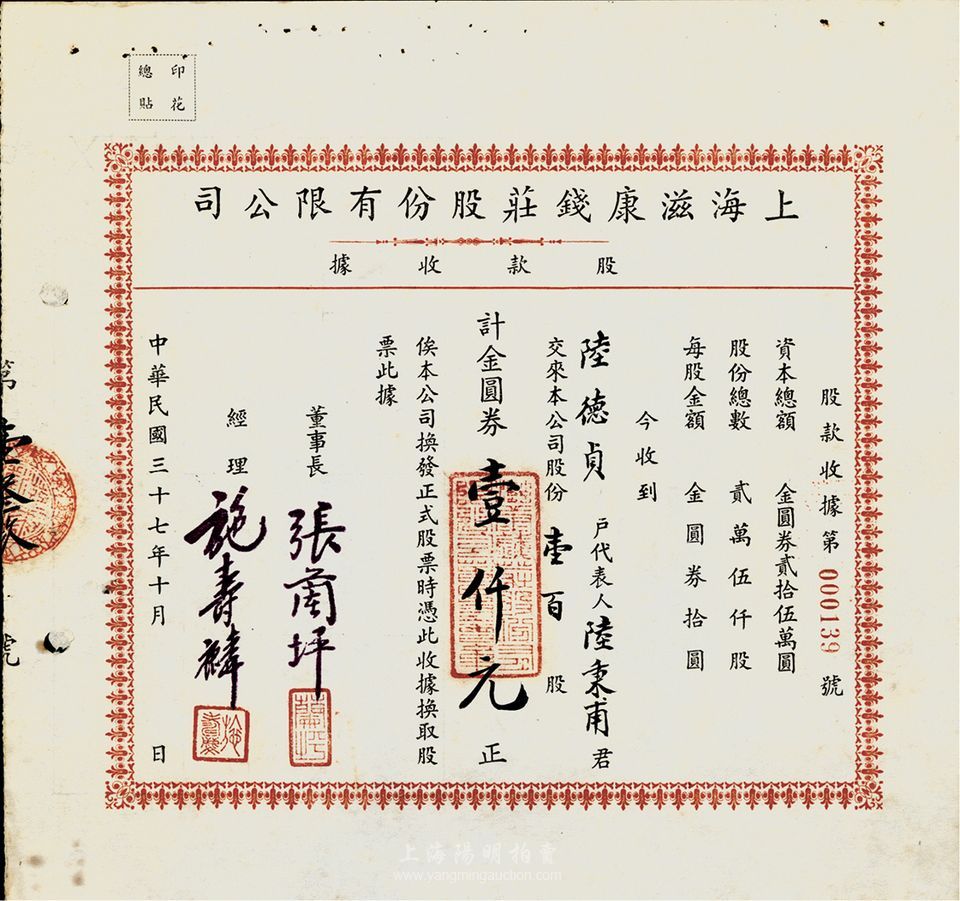 印花
總貼
上海滋康錢莊股份有限公司
股款收據
股款收據第 000139 號
資本總額 金圓券貳拾伍萬圓
股份總數 貳萬伍仟股
每股金額 金圓券拾圓
今收到
陸德貞 戶代表人 陸秉甫 君
交來本公司股份 壹百 股
計金圓券 壹仟元 正
俟本公司換發正式股票時憑此收據換取股
票此據
董事長 張蘭坪
蘭坪
經理 施壽麟
中華民國三十七年十月 日
號
上海陽明拍賣
www.yangmingauction.com